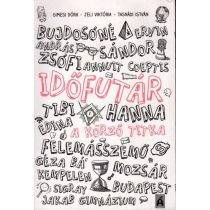 GIMESI DÓRA · JELI VIKTÓRIA · TASNÁDI ISTVÁN
BUJDOSÓNÉ ERVIN
ANDRÁS SÁNDOR
ZSÓFI ANNUIT COEPTIS
IDŐFUTÁR
TIBI HANNA
EDINA A KÖRZŐ TITKA
FELEMÁSSZEMŰ
GÉZA BÁ' MOZSÁR
KEMPELEN
SIGRAY BUDAPEST
JAKAB GIMNÁZIUM